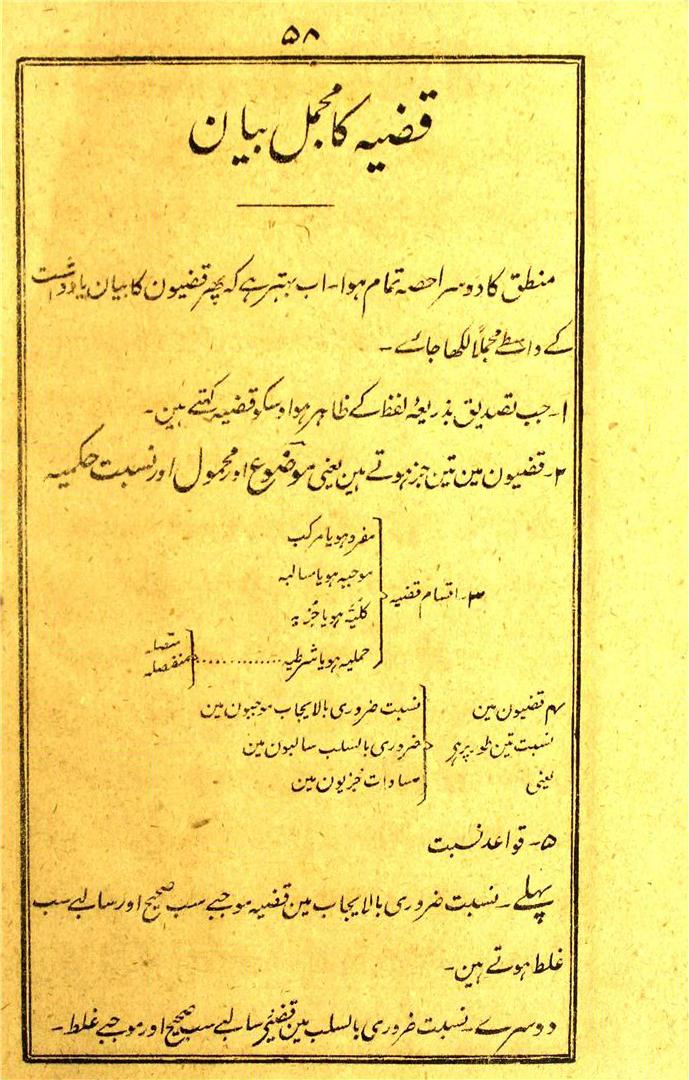 ۵۸
قضیہ کا مجمل بیان
منطق کا دوسرا حصہ تمام ہوا۔ اب بہتر ہے کہ پھر قضیون کا بیان یادداشت
کے واسطے مجملاً لکھا جائے۔
۱۔ جب تصدیق بذریعۂ لفظ کے ظاہر ہو اوسکو قضیہ کہتے ہین۔
۲۔ قضیون مین تین جز ہوتے ہین یعنی موضوع اور محمول اور نسبت حکمیہ
۳۔ اقسام قضیہ
مفرد ہو یا مرکب
موجبہ ہو یا سالبہ
کلیّہ ہو یا جُزیہ
حملیہ ہو یا شرطیہ ............
متصلہ
منفصلہ
۴ قضیون مین
نسبت تین طور پر ہی
یعنی
نسبت ضروری بالایجاب موجبون مین
ضروری بالسلب سالبون مین
مساوات جزیون مین
۵۔ قواعد نسبت
پہلے۔ نسبت ضروری بالایجاب مین قضیہ موجبے سب صحیح اور سالبے سب
غلط ہوتے ہین۔
دوسرے۔ نسبت ضروری بالسلب مین قضیے سالبے سب صحیح اور موجبے غلط۔